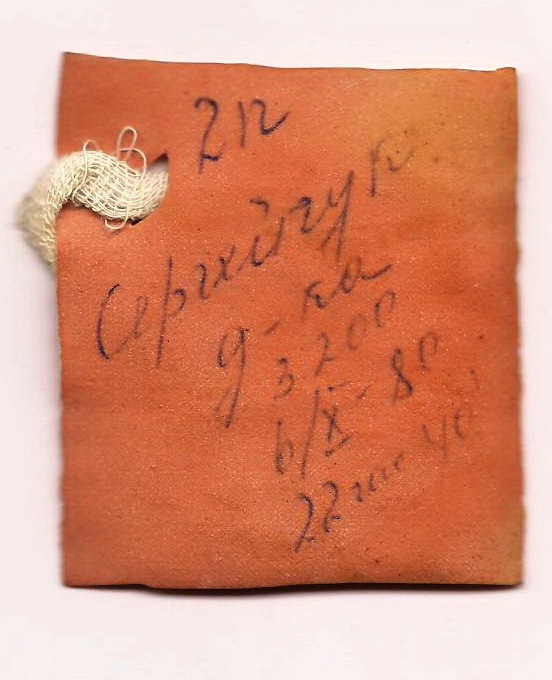 2п
Сергейчук
д-ка
3200
6/X-80
22 час 40'